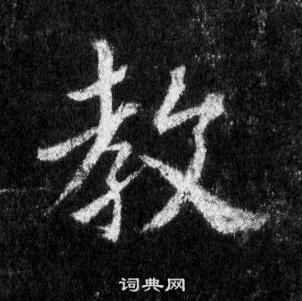 教
词典网